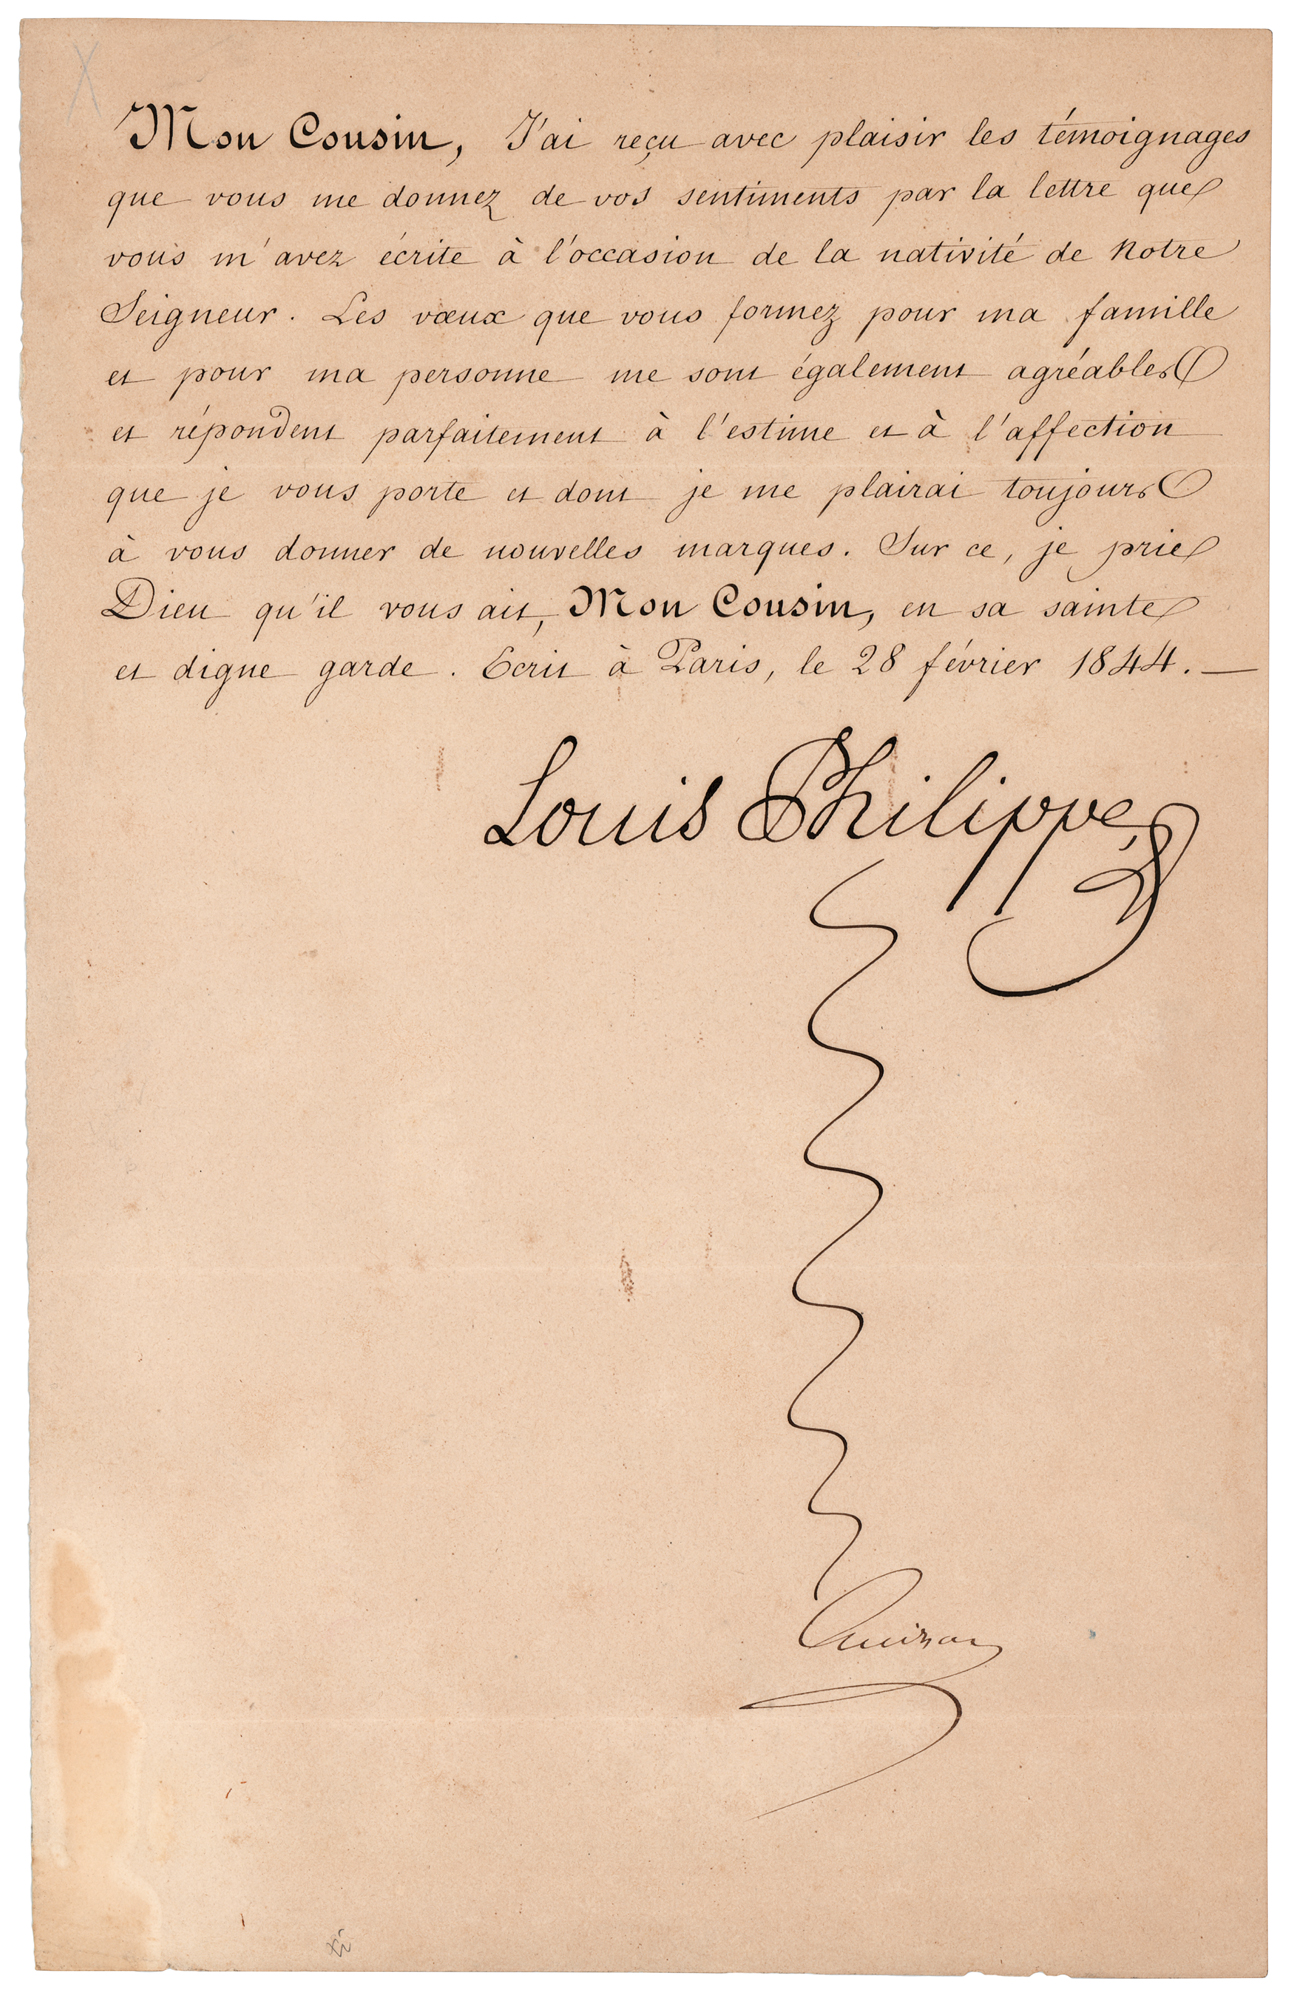 Mon Cousin, J'ai reçu avec plaisir les témoignages
que vous me donnez de vos sentiments par la lettre que
vous m'avez écrite à l'occasion de la nativité de Notre
Seigneur. Les vœux que vous formez pour ma famille
et pour ma personne me sont également agréables
et répondent parfaitement à l'estime et à l'affection
que je vous porte et dont je me plairai toujours
à vous donner de nouvelles marques. Sur ce, je prie
Dieu qu'il vous ait, Mon Cousin, en sa sainte
et digne garde. Ecrit à Paris, le 28 février 1844. —
Louis Philippe
Guizot